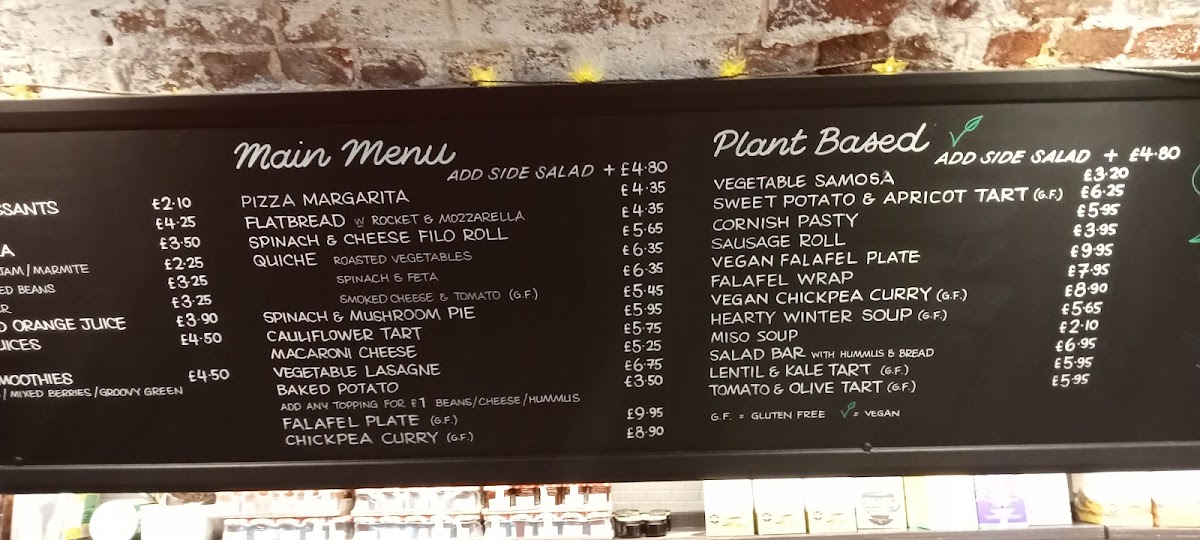 SSANTS £2.10
£4.25
A £3.50
JAM/MARMITE £2.25
ED BEANS £3.25
ER £3.25
D ORANGE JUICE £3.90
UICES £4.50
MOOTHIES £4.50
/ MIXED BERRIES/GROOVY GREEN
Main Menu
ADD SIDE SALAD + £4.80
PIZZA MARGARITA £4.35
FLATBREAD W ROCKET & MOZZARELLA £4.35
SPINACH & CHEESE FILO ROLL £5.65
QUICHE ROASTED VEGETABLES £6.35
SPINACH & FETA £6.35
SMOKED CHEESE & TOMATO (G.F.) £5.45
SPINACH & MUSHROOM PIE £5.95
CAULIFLOWER TART £5.75
MACARONI CHEESE £5.25
VEGETABLE LASAGNE £6.75
BAKED POTATO £3.50
ADD ANY TOPPING FOR £1 BEANS/CHEESE/HUMMUS
FALAFEL PLATE (G.F.) £9.95
CHICKPEA CURRY (G.F.) £8.90
Plant Based
ADD SIDE SALAD + £4.80
VEGETABLE SAMOSA £3.20
SWEET POTATO & APRICOT TART (G.F.) £6.25
CORNISH PASTY £5.95
SAUSAGE ROLL £3.95
VEGAN FALAFEL PLATE £9.95
FALAFEL WRAP £7.95
VEGAN CHICKPEA CURRY (G.F.) £8.90
HEARTY WINTER SOUP (G.F.) £5.65
MISO SOUP £2.10
SALAD BAR WITH HUMMUS & BREAD £6.95
LENTIL & KALE TART (G.F.) £5.95
TOMATO & OLIVE TART (G.F.) £5.95
G.F. = GLUTEN FREE V = VEGAN